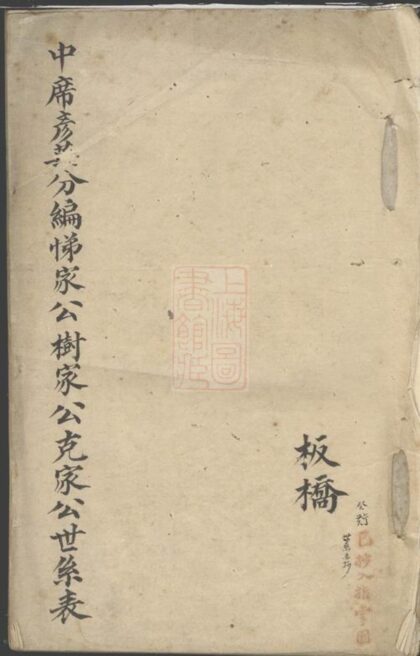 中席彥英分編悌家公樹家公克家公世系表
上海圖書館藏
板橋
已抄入